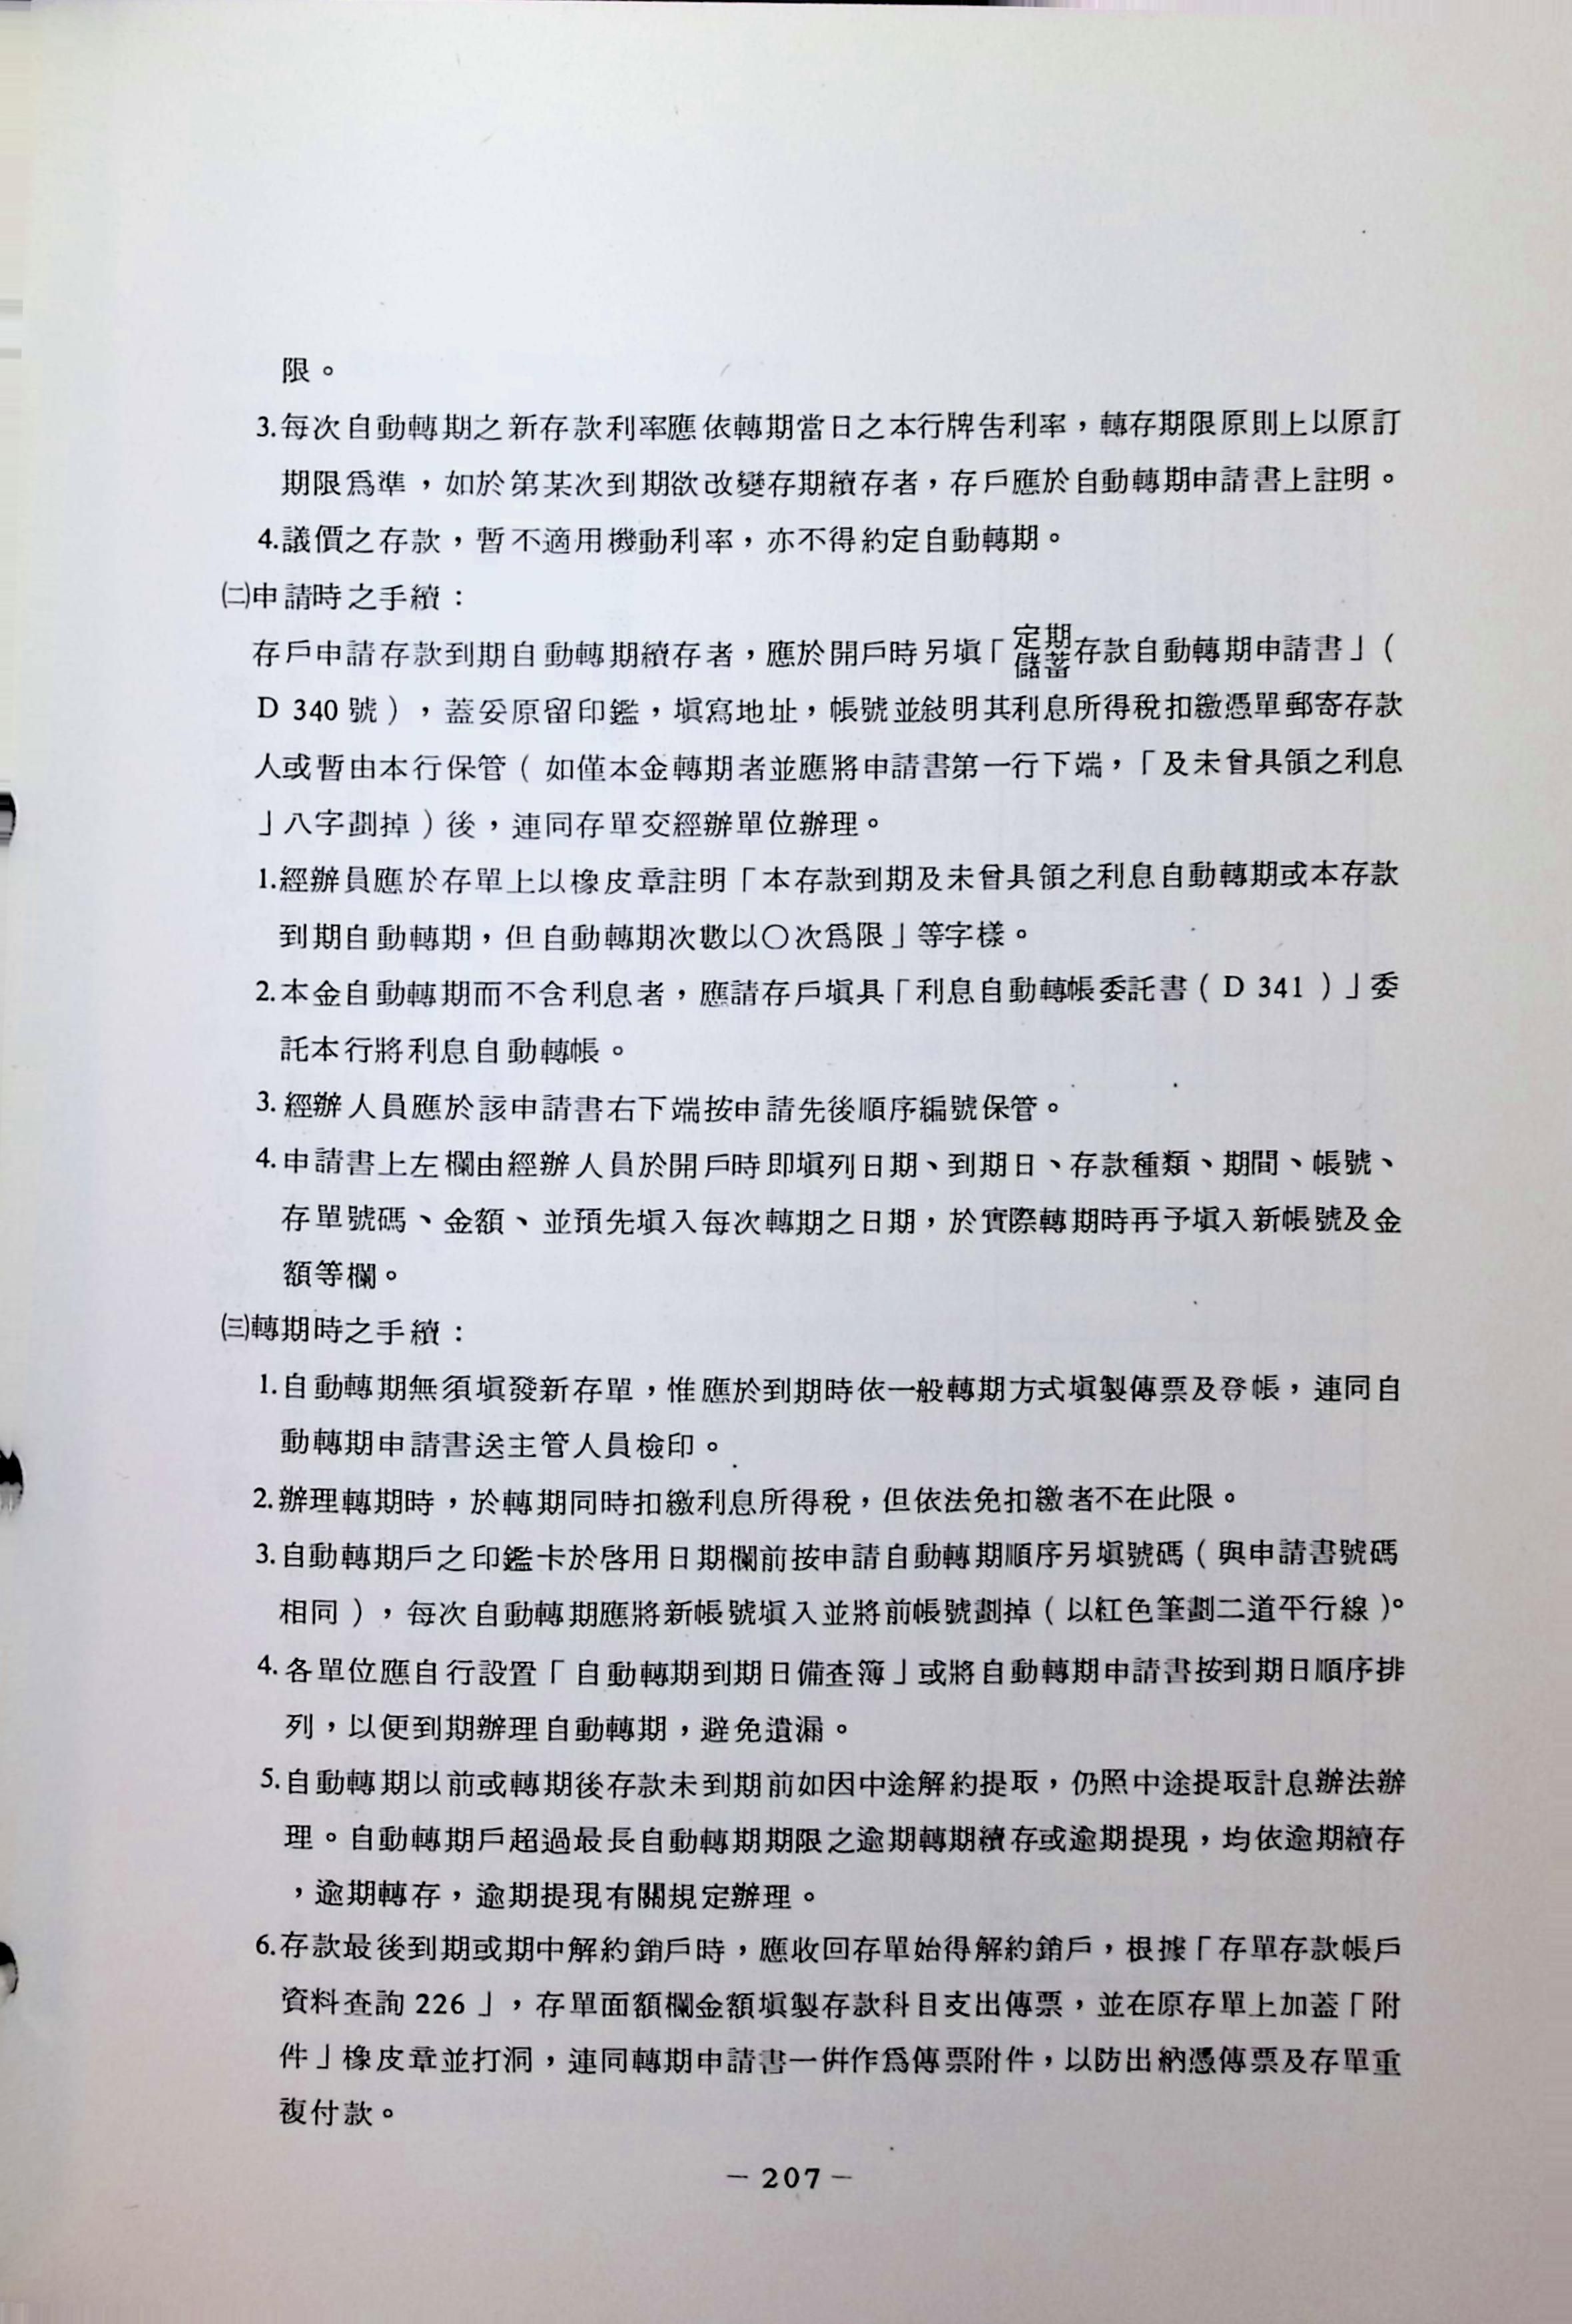 限。
3.每次自動轉期之新存款利率應依轉期當日之本行牌告利率，轉存期限原則上以原訂
期限爲準，如於第某次到期欲改變存期續存者，存戶應於自動轉期申請書上註明。
4.議價之存款，暫不適用機動利率，亦不得約定自動轉期。
㈡申請時之手續：
存戶申請存款到期自動轉期續存者，應於開戶時另填「定期儲蓄存款自動轉期申請書」（
D 340 號），蓋妥原留印鑑，填寫地址，帳號並敍明其利息所得稅扣繳憑單郵寄存款
人或暫由本行保管（如僅本金轉期者並應將申請書第一行下端，「及未曾具領之利息
」八字劃掉）後，連同存單交經辦單位辦理。
1.經辦員應於存單上以橡皮章註明「本存款到期及未曾具領之利息自動轉期或本存款
到期自動轉期，但自動轉期次數以○次爲限」等字樣。
2.本金自動轉期而不含利息者，應請存戶填具「利息自動轉帳委託書（D 341）」委
託本行將利息自動轉帳。
3.經辦人員應於該申請書右下端按申請先後順序編號保管。
4.申請書上左欄由經辦人員於開戶時即填列日期、到期日、存款種類、期間、帳號、
存單號碼、金額、並預先填入每次轉期之日期，於實際轉期時再予填入新帳號及金
額等欄。
㈢轉期時之手續：
1.自動轉期無須填發新存單，惟應於到期時依一般轉期方式填製傳票及登帳，連同自
動轉期申請書送主管人員檢印。
2.辦理轉期時，於轉期同時扣繳利息所得稅，但依法免扣繳者不在此限。
3.自動轉期戶之印鑑卡於啓用日期欄前按申請自動轉期順序另填號碼（與申請書號碼
相同），每次自動轉期應將新帳號填入並將前帳號劃掉（以紅色筆劃二道平行線）。
4.各單位應自行設置「自動轉期到期日備查簿」或將自動轉期申請書按到期日順序排
列，以便到期辦理自動轉期，避免遺漏。
5.自動轉期以前或轉期後存款未到期前如因中途解約提取，仍照中途提取計息辦法辦
理。自動轉期戶超過最長自動轉期期限之逾期轉期續存或逾期提現，均依逾期續存
，逾期轉存，逾期提現有關規定辦理。
6.存款最後到期或期中解約銷戶時，應收回存單始得解約銷戶，根據「存單存款帳戶
資料查詢 226 」，存單面額欄金額填製存款科目支出傳票，並在原存單上加蓋「附
件」橡皮章並打洞，連同轉期申請書一併作爲傳票附件，以防出納憑傳票及存單重
複付款。
－207－